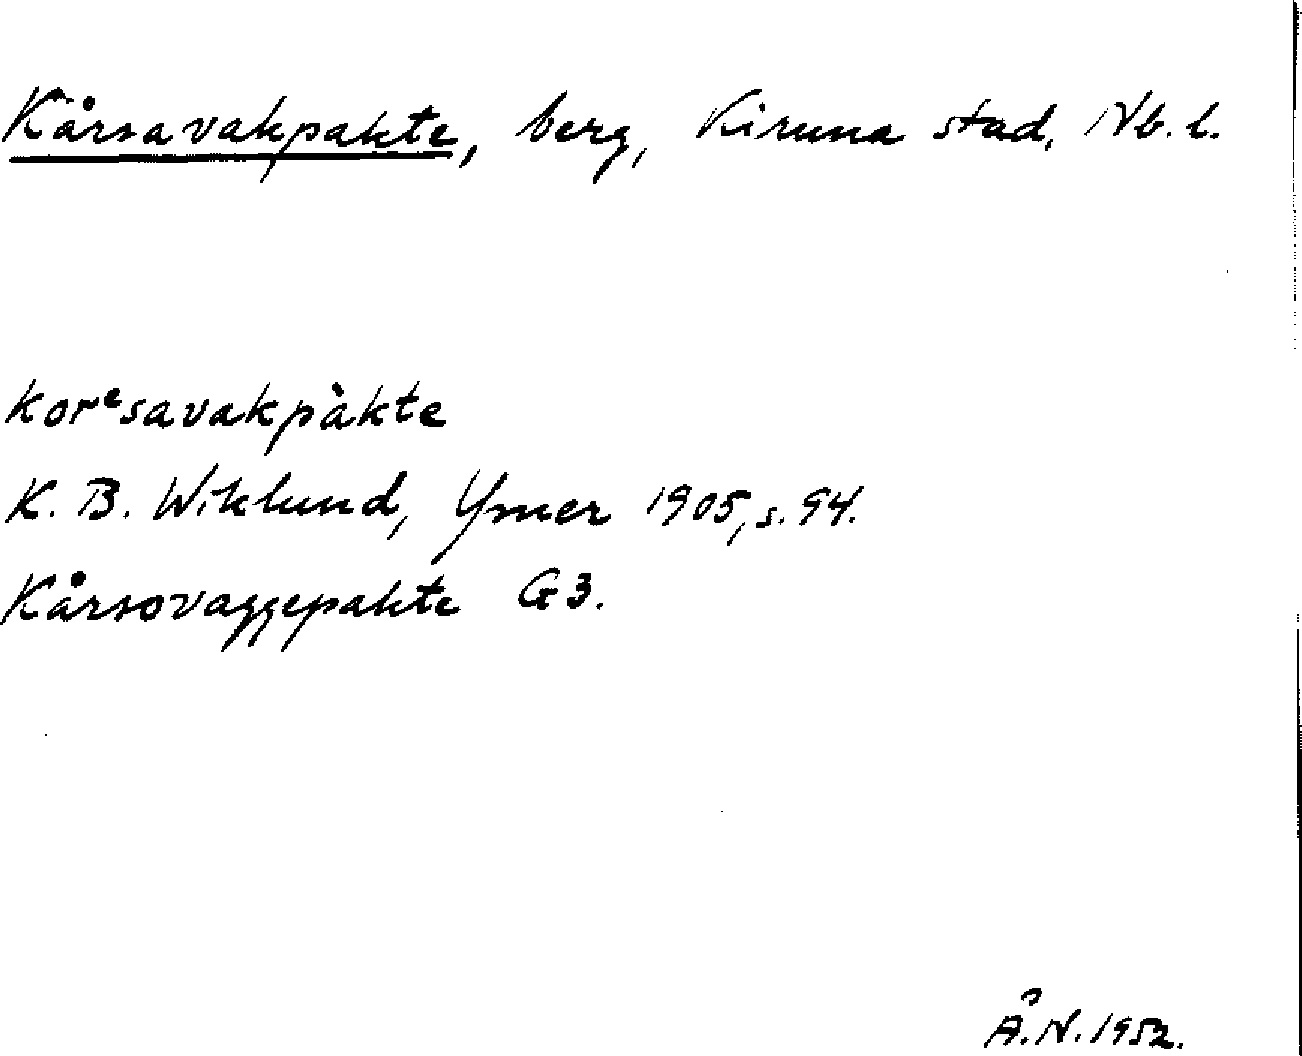 Kårsavakpakte, berg, Kiruna stad, Nb. l.
korᵉsavakpàkte
K. B. Wiklund, Ymer 1905, s. 94.
Kårsovaggepakte G3.
Å.N. 1952.